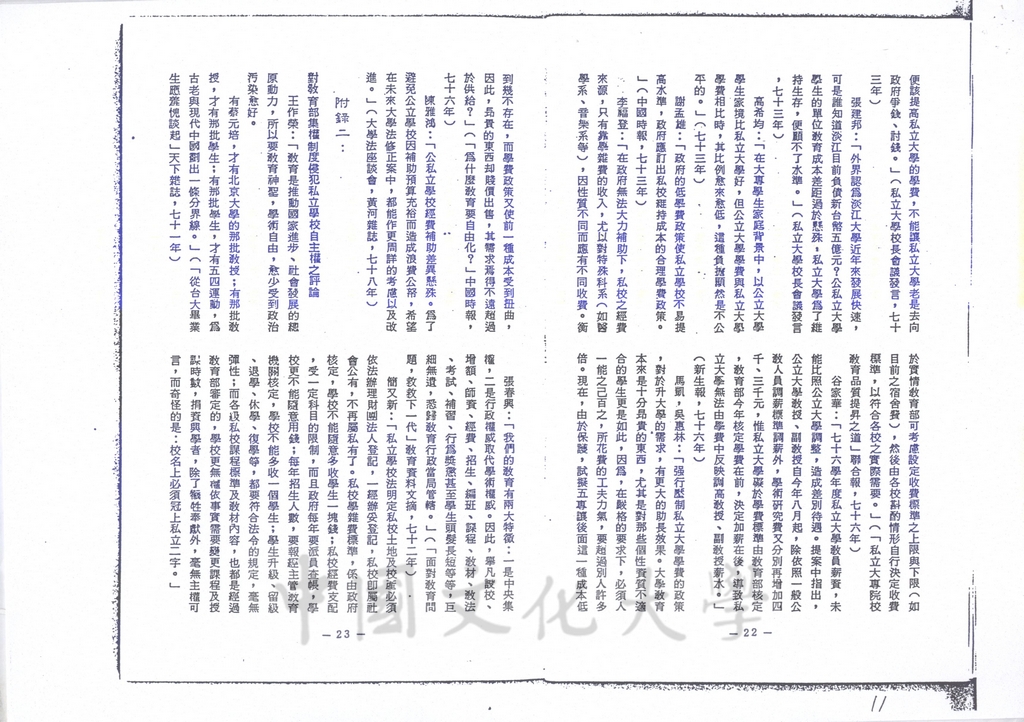 便該提高私立大學的學費，不能讓私立大學老是去向
政府爭錢、討錢。」（私立大學校長會議發言，七十
三年）
張建邦：「外界認為淡江大學近年來發展快速，
可是誰知道淡江目前負債新台幣五億元？公私立大學
學生的單位教育成本差距過於懸殊，私立大學為了維
持生存，便顧不了水準。」（私立大學校長會議發言
，七十三年）
高希均：「在大專學生家庭背景中，以公立大學
學生家境比私立大學好，但公立大學學費與私立大學
學費相比時，其比例愈來愈低，這種負擔顯然是不公
平的。」（七十三年）
謝孟雄：「政府的低學費政策使私立學校不易提
高水準，政府應訂出私校維持成本的合理學費政策。
」（中國時報，七十三年）
李福登：「在政府無法大力補助下，私校之經費
來源，只有靠學雜費的收入，尤以對特殊科系（如醫
學系、音樂系等），因性質不同而應有不同收費。衡
於實情教育部可考慮設定收費標準之上限與下限（如
目前之宿舍費），然後由各校斟酌情形自行決定收費
標準，以符合各校之實際需要。」（「私立大專院校
教育品質提昇之道」聯合報，七十六年）
谷家華：「七十六學年度私立大學教員薪資，未
能比照公立大學調整，造成差別待遇。提案中指出，
公立大學教授、副教授自今年八月起，除依照一般公
教人員調薪標準調薪外，學術研究費又分別再增加四
千、三千元，惟私立大學礙於學費標準由教育部核定
，教育部今年核定學費在前，決定加薪在後，導致私
立大學無法由學費中反映調高教授、副教授薪水。」
（新生報，七十六年）
馬凱，吳惠林：「強行壓制私立大學學費的政策
，對於升大學的需求，有更大的助長效果。大學教育
本來是十分昂貴的東西，尤其是對那些個性資質不適
合的學生更是如此，因為，在嚴格的要求下，必須人
一能之己百之，所花費的工夫力氣，要超過別人許多
倍。現在，由於保護，試擬五專讓後面這一種成本低
— 22 —
到幾不存在，而學費政策又使前一種成本受到扭曲，
因此，昂貴的東西却賤價出售，其需求焉得不遠超過
於供給？」（「為什麼教育要自由化？」中國時報，
七十六年）
陳雅鴻：「公私立學校經費補助差異懸殊。為了
避免公立學校因補助預算充裕而造成浪費公帑，希望
在未來大學法修正案中，都能作更周詳的考慮以及改
進。」（大學法座談會，黃河雜誌，七十八年）
附錄二：
對教育部集權制度侵犯私立學校自主權之評論
王作榮：「教育是推動國家進步、社會發展的總
原動力，所以要教育神聖，學術自由，愈少受到政治
汚染愈好。
有蔡元培，才有北京大學的那批教授；有那批教
授，才有那批學生；有那批學生，才有五四運動，為
古老與現代中國劃出一條分界線。」（「從台大畢業
生應縈愧談起」天下雜誌，七十一年）
張春興：「我們的教育有兩大特徵：一是中央集
權，二是行政權威取代學術權威。因此，舉凡設校、
增額、師資、經費、招生、編班、課程、教材、教法
、考試、補習、行為獎懲甚至學生頭髮長短等等，巨
細無遺，悉歸教育行政當局管轄。」（「面對教育問
題，救救下一代」教育資料文摘，七十二年）
簡又新：「私立學校法明定私校土地及校產必須
依法辦理財團法人登記，一經辦妥登記，私校即屬社
會公有，不再屬私有了。私校學雜費標準，係由政府
核定，學校不能隨意多收學生一塊錢；私校經費支配
，受一定科目的限制，而且政府每年要派員查帳，學
校更不能隨意用錢；每年招生人數，要報經主管教育
機關核定，學校不能多收一個學生；學生升級、留級
、退學、休學、復學等，都要符合法令的規定，毫無
彈性；而各級私校課程標準及教材內容，也都是經過
教育部審定的，學校更無權依事實需要變更課程及授
課時數，捐資興學者，除了犧牲奉獻外，毫無主權可
言，而奇怪的是：校名上必須冠上私立二字。」
— 23 —
中國文化大學
11